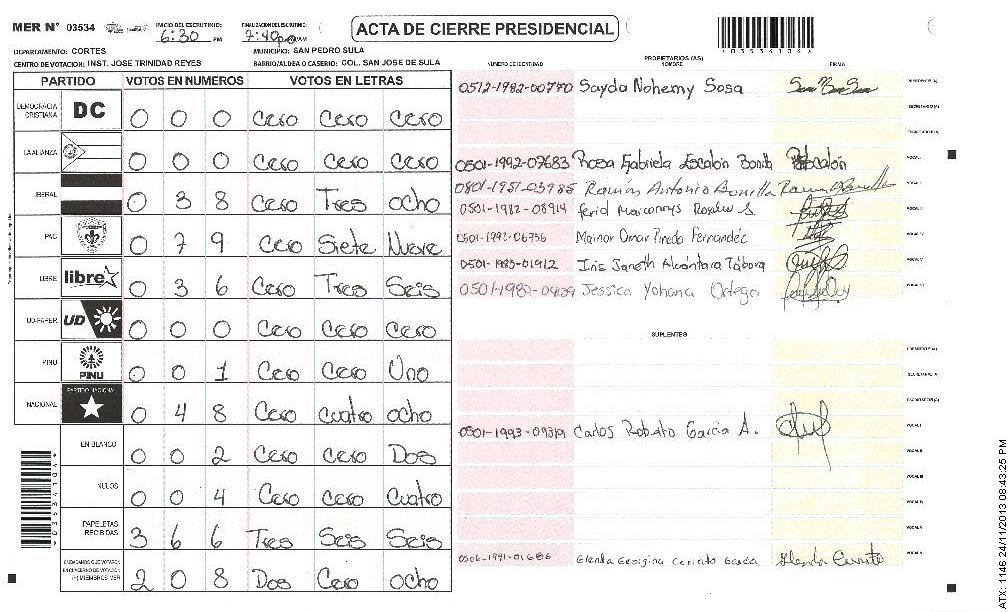 MER N° 03534
INICIO DEL ESCRUTINIO:
6:30 PM
FINALIZACION DEL ESCRUTINIO:
7:40
ACTA DE CIERRE PRESIDENCIAL
DEPARTAMENTO: CORTES
MUNICIPIO: SAN PEDRO SULA
CENTRO DE VOTACION: INST. JOSE TRINIDAD REYES
BARRIO/ALDEA O CASERIO: COL. SAN JOSE DE SULA
PARTIDO VOTOS EN NUMEROS VOTOS EN LETRAS
DEMOCRACIA CRISTIANA DC 0 0 0 Cero Cero Cero
LA ALIANZA 0 0 0 Cero Cero Cero
LIBERAL 0 3 8 Cero Tres Ocho
PAC 0 7 9 Cero Siete Nueve
LIBRE libre 0 3 6 Cero Tres Seis
UD-FAPER UD 0 0 0 Cero Cero Cero
PINU PINU 0 0 1 Cero Cero Uno
NACIONAL PARTIDO NACIONAL 0 4 8 Cero Cuatro Ocho
EN BLANCO 0 0 2 Cero Cero Dos
NULOS 0 0 4 Cero Cero Cuatro
PAPELETAS RECIBIDAS 3 6 6 Tres Seis Seis
CIUDADANOS QUE VOTARON EN CUADERNO DE VOTACION (+) MIEMBROS MER 2 0 8 Dos Cero Ocho
PROPIETARIOS (AS)
NUMERO DE IDENTIDAD NOMBRE FIRMA
0512-1982-00770 Sayda Nohemy Sosa
PRESIDENTE (A)
SECRETARIO (A)
ESCRUTADOR (A)
0501-1992-07683 Rosa Gabriela Escalón Bonilla
VOCAL I
0801-1951-03985 Ramón Antonio Bonilla
0501-1982-08914 Rosales S.
0501-1992-06756 Mainor Omar Pinedo Fernandéz
0501-1983-01912 Iris Janeth Alcántara Tábora
0501-1982-09139 Jessica Yohana Ortega
SUPLENTES
PRESIDENTE (A)
SECRETARIO (A)
ESCRUTADOR (A)
0501-1993-09319 Carlos Roberto Garcia A.
VOCAL I
VOCAL II
VOCAL III
VOCAL IV
VOCAL V
0506-1991-01686 Glenda Georgina Cerrato Garcia
* 03534104 *
ATX: 1146 24/11/2013 08:43:25 PM